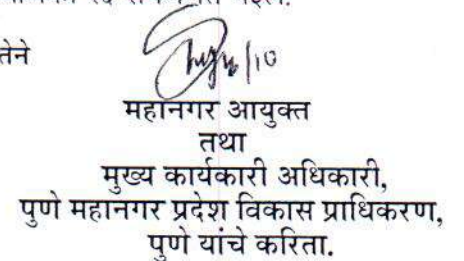 तेने
/10
महानगर आयुक्त
तथा
मुख्य कार्यकारी अधिकारी,
पुणे महानगर प्रदेश विकास प्राधिकरण,
पुणे यांचे करिता.